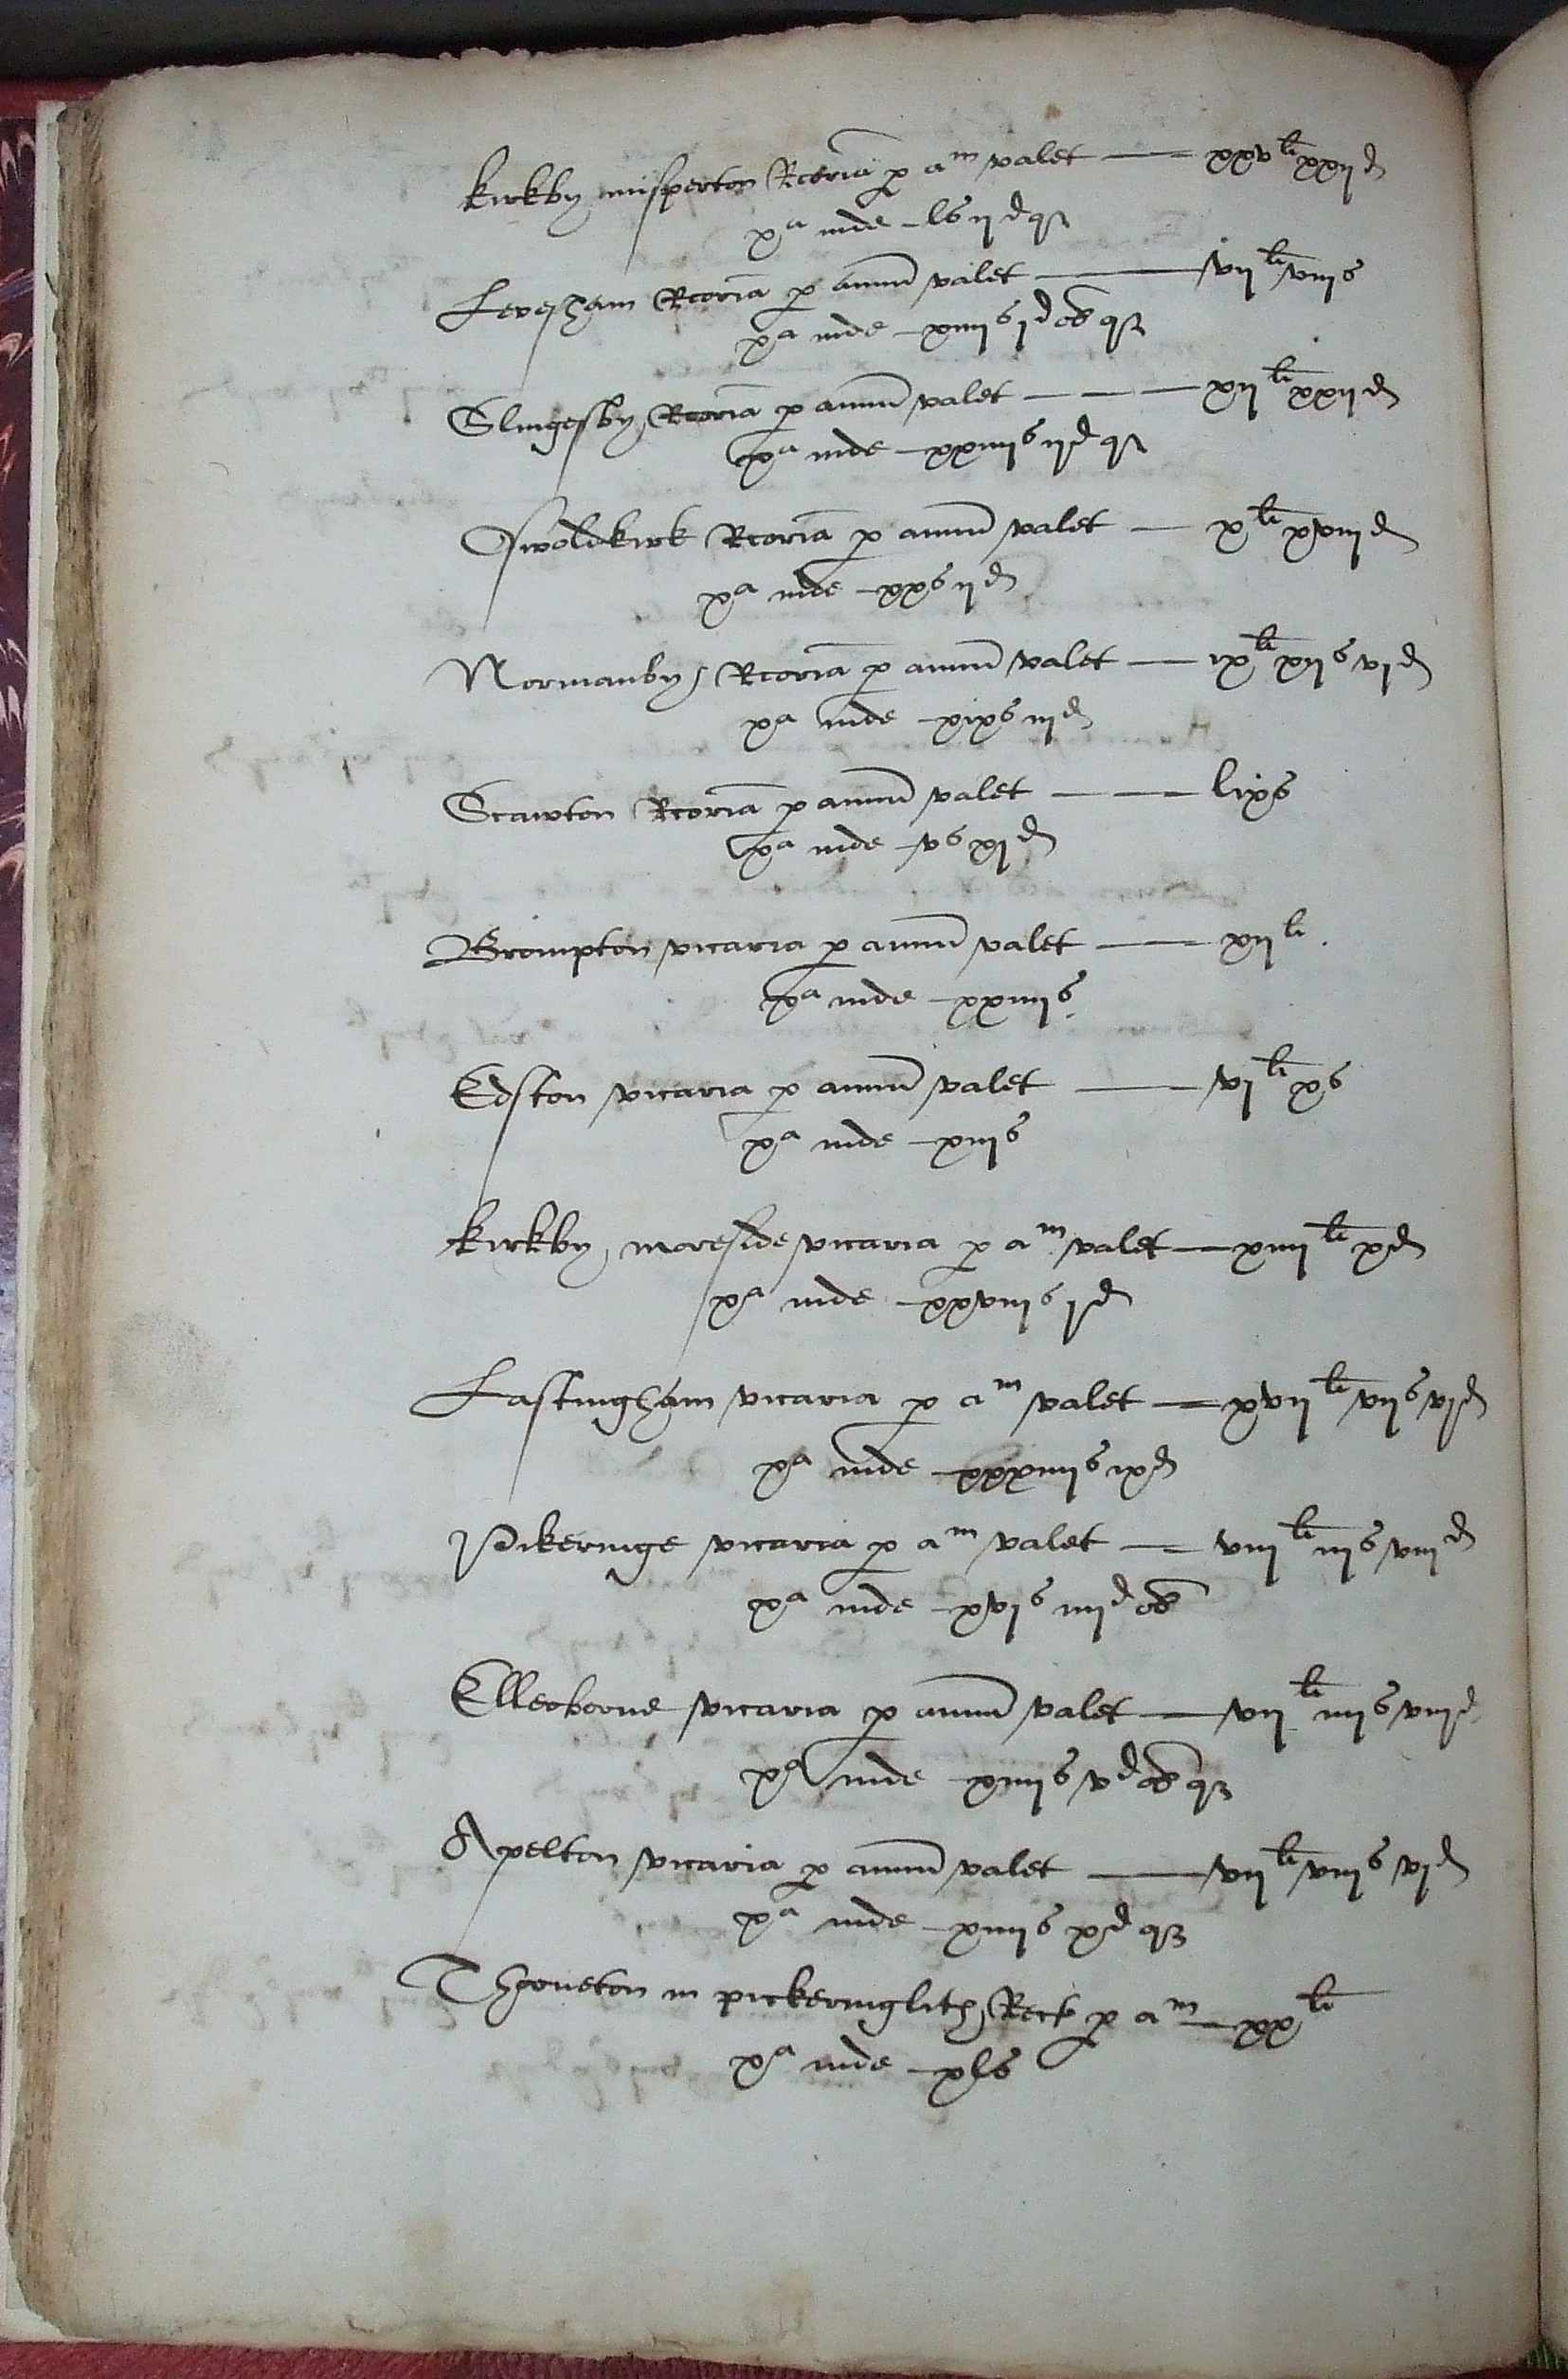 Kirkby misperton Rcoria p a^m valet — xxv^li xxij^d
x^a inde – l^s ij^d q^a
Levesham Rcoria p annu valet — vij^li viij^s
x^a inde – xiiij^s j^d ob q^a
Slingesby Rcoria p annu valet — xij^li xxij^d
x^a inde – xxiiij^s ij^d q^a
Oswoldkirk Rcoria p annu valet — x^li xviij^d
x^a inde – xx^s ij^d
Normanby Rcoria p annu valet — ix^li xij^s vj^d
x^a inde xix^s iij^d
Scawton Rcoria p annu valet — lix^s
x^a inde – v^s xj^d
Brompton vicaria p annu valet — xij^li.
x^a inde – xxiiij^s.
Edston vicaria p annu valet — vj^li x^s
x^a inde – xiij^s
Kirkby moreside vicaria p a^m valet — xiiij^li x^d
x^a inde – xxviij^s j^d
Lastingham vicaria p a^m valet — xvij^li vij^s vj^d
x^a inde – xxxiiij^s ix^d
Pikeringe vicaria p a^m valet — viij^li iij^s viij^d
x^a inde – xvj^s iiij^d ob
Ellerborne vicaria p annu valet — vij^li iiij^s viij^d
x^a inde – xiiij^s v^d ob q^a
Apelton vicaria p annu valet — vij^li viij^s vj^d
x^a inde – xiiij^s x^d q^a
Thorneton in pickeringlith Rect p a^m — xx^li
x^a inde – xl^s